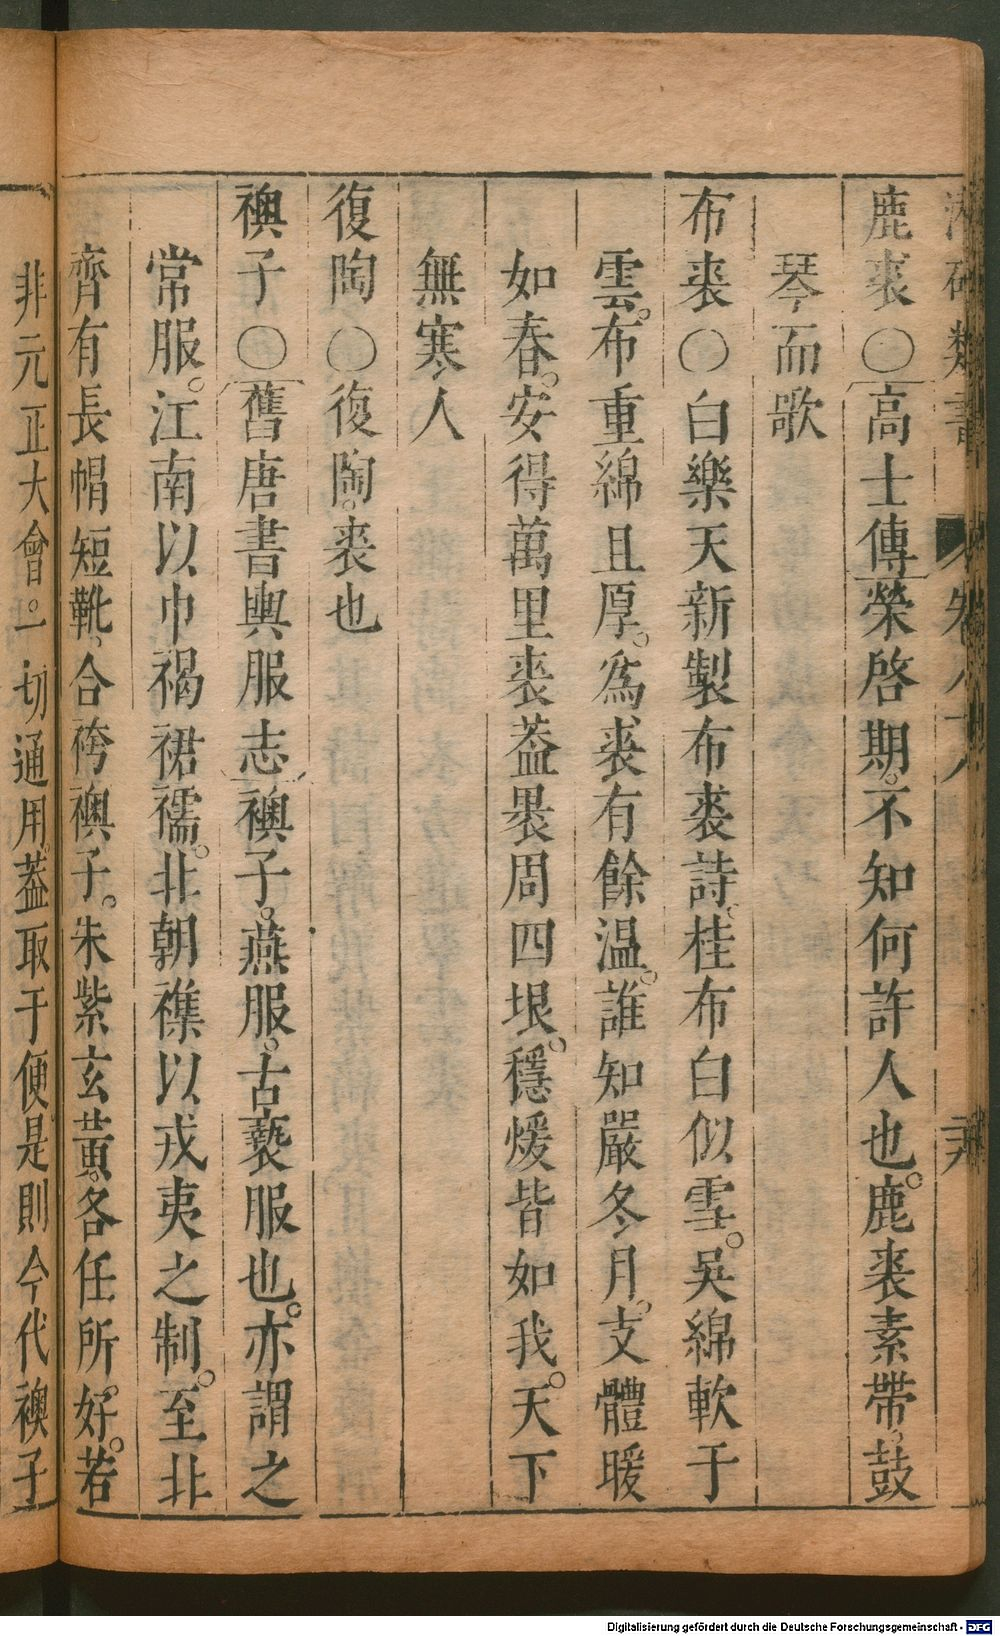 類書
卷
鹿裘○高士傳榮啓期。不知何許人也。鹿裘素帶。鼓
琴而歌
布裘○白樂天新製布裘詩。桂布白似雪。吳綿軟于
雲。布重綿且厚。爲裘有餘温。誰知嚴冬月。支體暖
如春。安得萬里裘蓋裹周四垠。穩煖皆如我。天下
無寒人
復陶○復陶。裘也
襖子○舊唐書輿服志襖子。燕服。古褻服也。亦謂之
常服。江南以巾褐裙襦。北朝襍以戎夷之制。至北
齊有長帽短靴。合袴襖子。朱紫玄黄。各任所好。若
非元正大會。一切通用。蓋取于便是則今代襖子
Digitalisierung gefördert durch die Deutsche Forschungsgemeinschaft - DFG